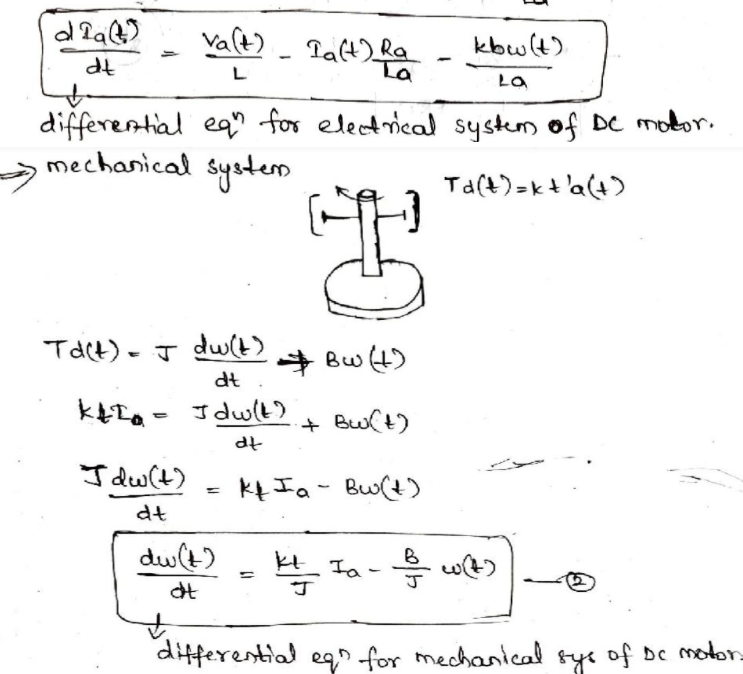 dIa(t)/dt = Va(t)/L - Ia(t) Ra/La - kbω(t)/La
differential eqn for electrical system of DC motor.
⇒ mechanical system
Td(t)=kt'a(t)
Td(t) = J dω(t)/dt + Bω(t)
ktIa = J dω(t)/dt + Bω(t)
J dω(t)/dt = kt Ia - Bω(t)
dω(t)/dt = kt/J Ia - B/J ω(t) — ②
differential eqn for mechanical sys of DC motor.